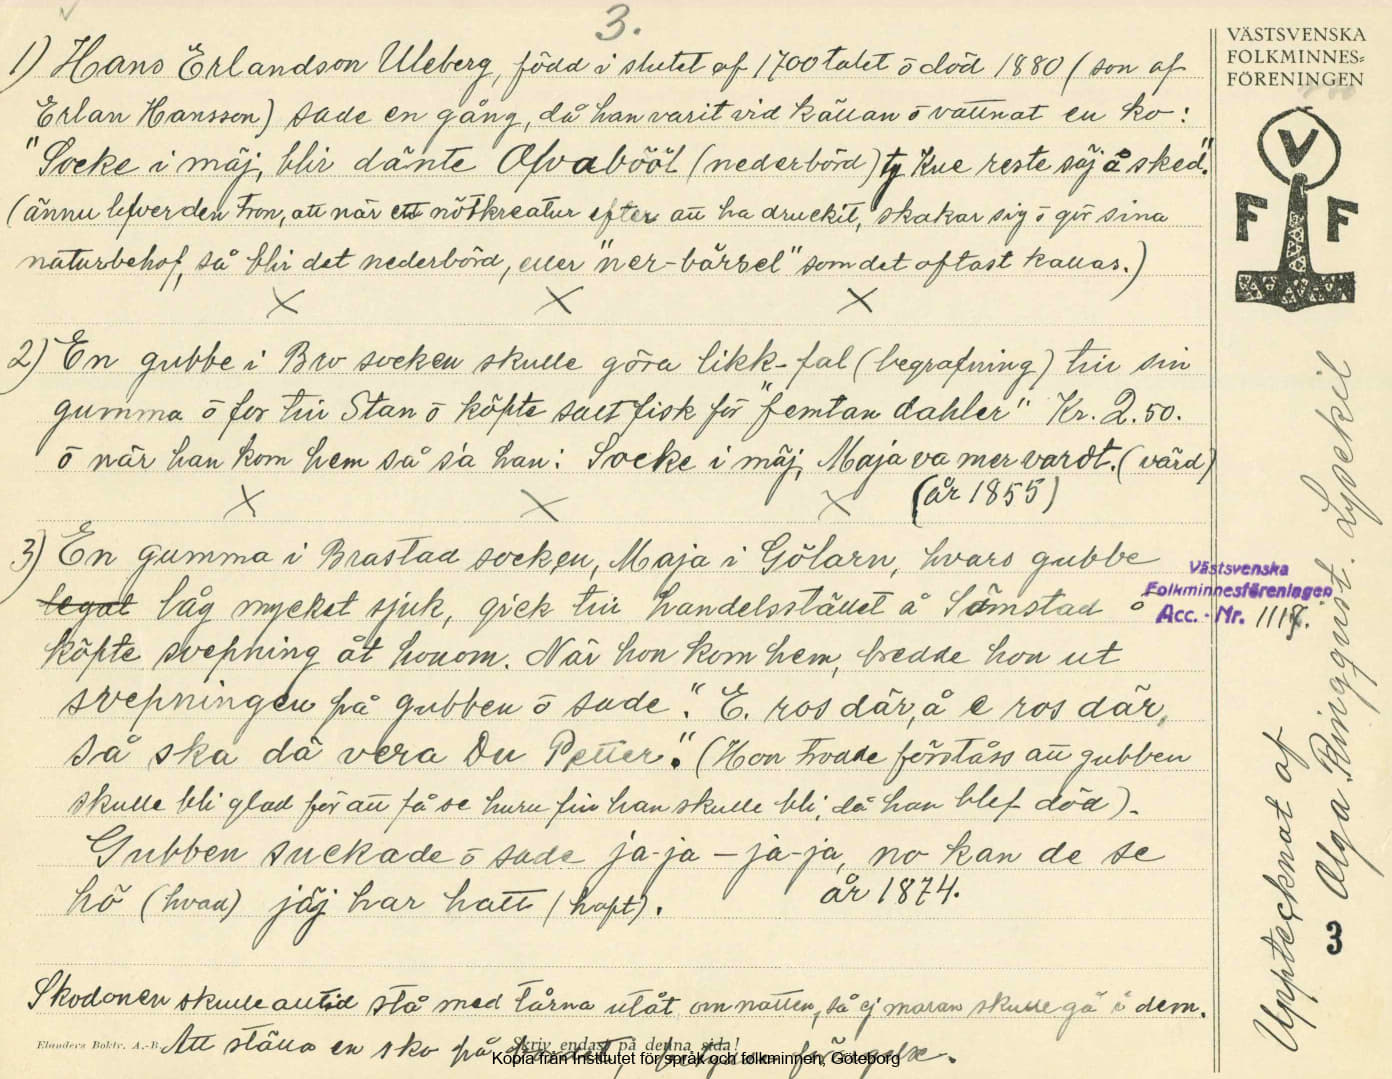 3.
VÄSTSVENSKA
FOLKMINNES-
FÖRENINGEN
V
F F
1) Hans Erlandson Uleberg, född i slutet af 1700talet ō död 1880 (son af
Erlan Hansson) sade en gång, då han varit vid källan ō vattnat en ko:
"Socke i mäj, blir dänte Olvabööl (nederbörd) ty Kue reste säj å sked".
(ännu lefver den tron, att när ett nötkreatur efter att ha druckit, skakar sig ō gör sina
naturbehof, så blir det nederbörd, eller "ner-bärsel" som det oftast kallas.)
X X X
2) En gubbe i Bro socken skulle göra likk-fal (begrafning) till sin
gumma ō for till Stan ō köpte salt fisk för "femtan dahler" Kr. 2.50.
ō när han kom hem så sa han: Socke i mäj, Maja va mer vardt. (värd)
(år 1855)
X X X
3) En gumma i Brastad socken, Maja i Gölarn, hvars gubbe
legat låg mycket sjuk, gick till handelsstället å Sämstad ō
köpte svepning åt honom. När hon kom hem, bredde hon ut
svepningen på gubben ō sade: "E. ros där, å e ros där,
så ska dä vera Du Petter". (Hon trodde förståss att gubben
skulle bli glad för att få se huru fin han skulle bli, då han blef död).
Gubben suckade ō sade ja-ja – ja-ja, no kan de se
hö (hvad) jäj har hatt (haft). år 1874.
Skodonen skulle alltid stå med tårna utåt om natten, så ej maran skulle gå i dem.
Att ställa en sko på
Elanders Boktr. A.-B.
Skriv endast på denna sida!
Kopia från Institutet för språk och folkminnen, Göteborg
Västsvenska
Folkminnesföreningen
Acc. - Nr. 1117.
Upptecknat af
Olga Ringqvist. Lysekil
3